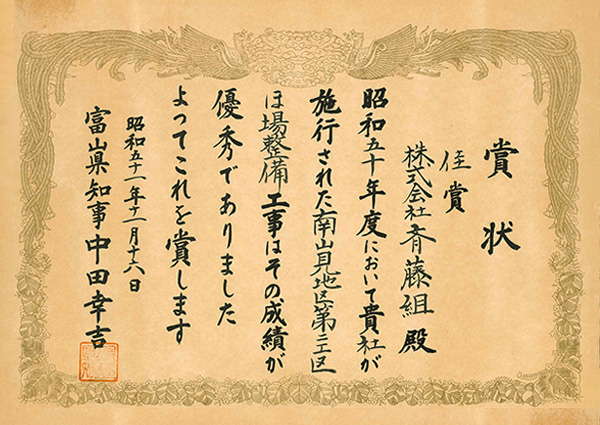 賞状
佳賞
株式会社斉藤組殿
昭和五十年度において貴社が
施行された南山見地区第三工区
ほ場整備工事はその成績が
優秀でありました
よってこれを賞します
昭和五十一年十一月十六日
富山県知事中田幸吉